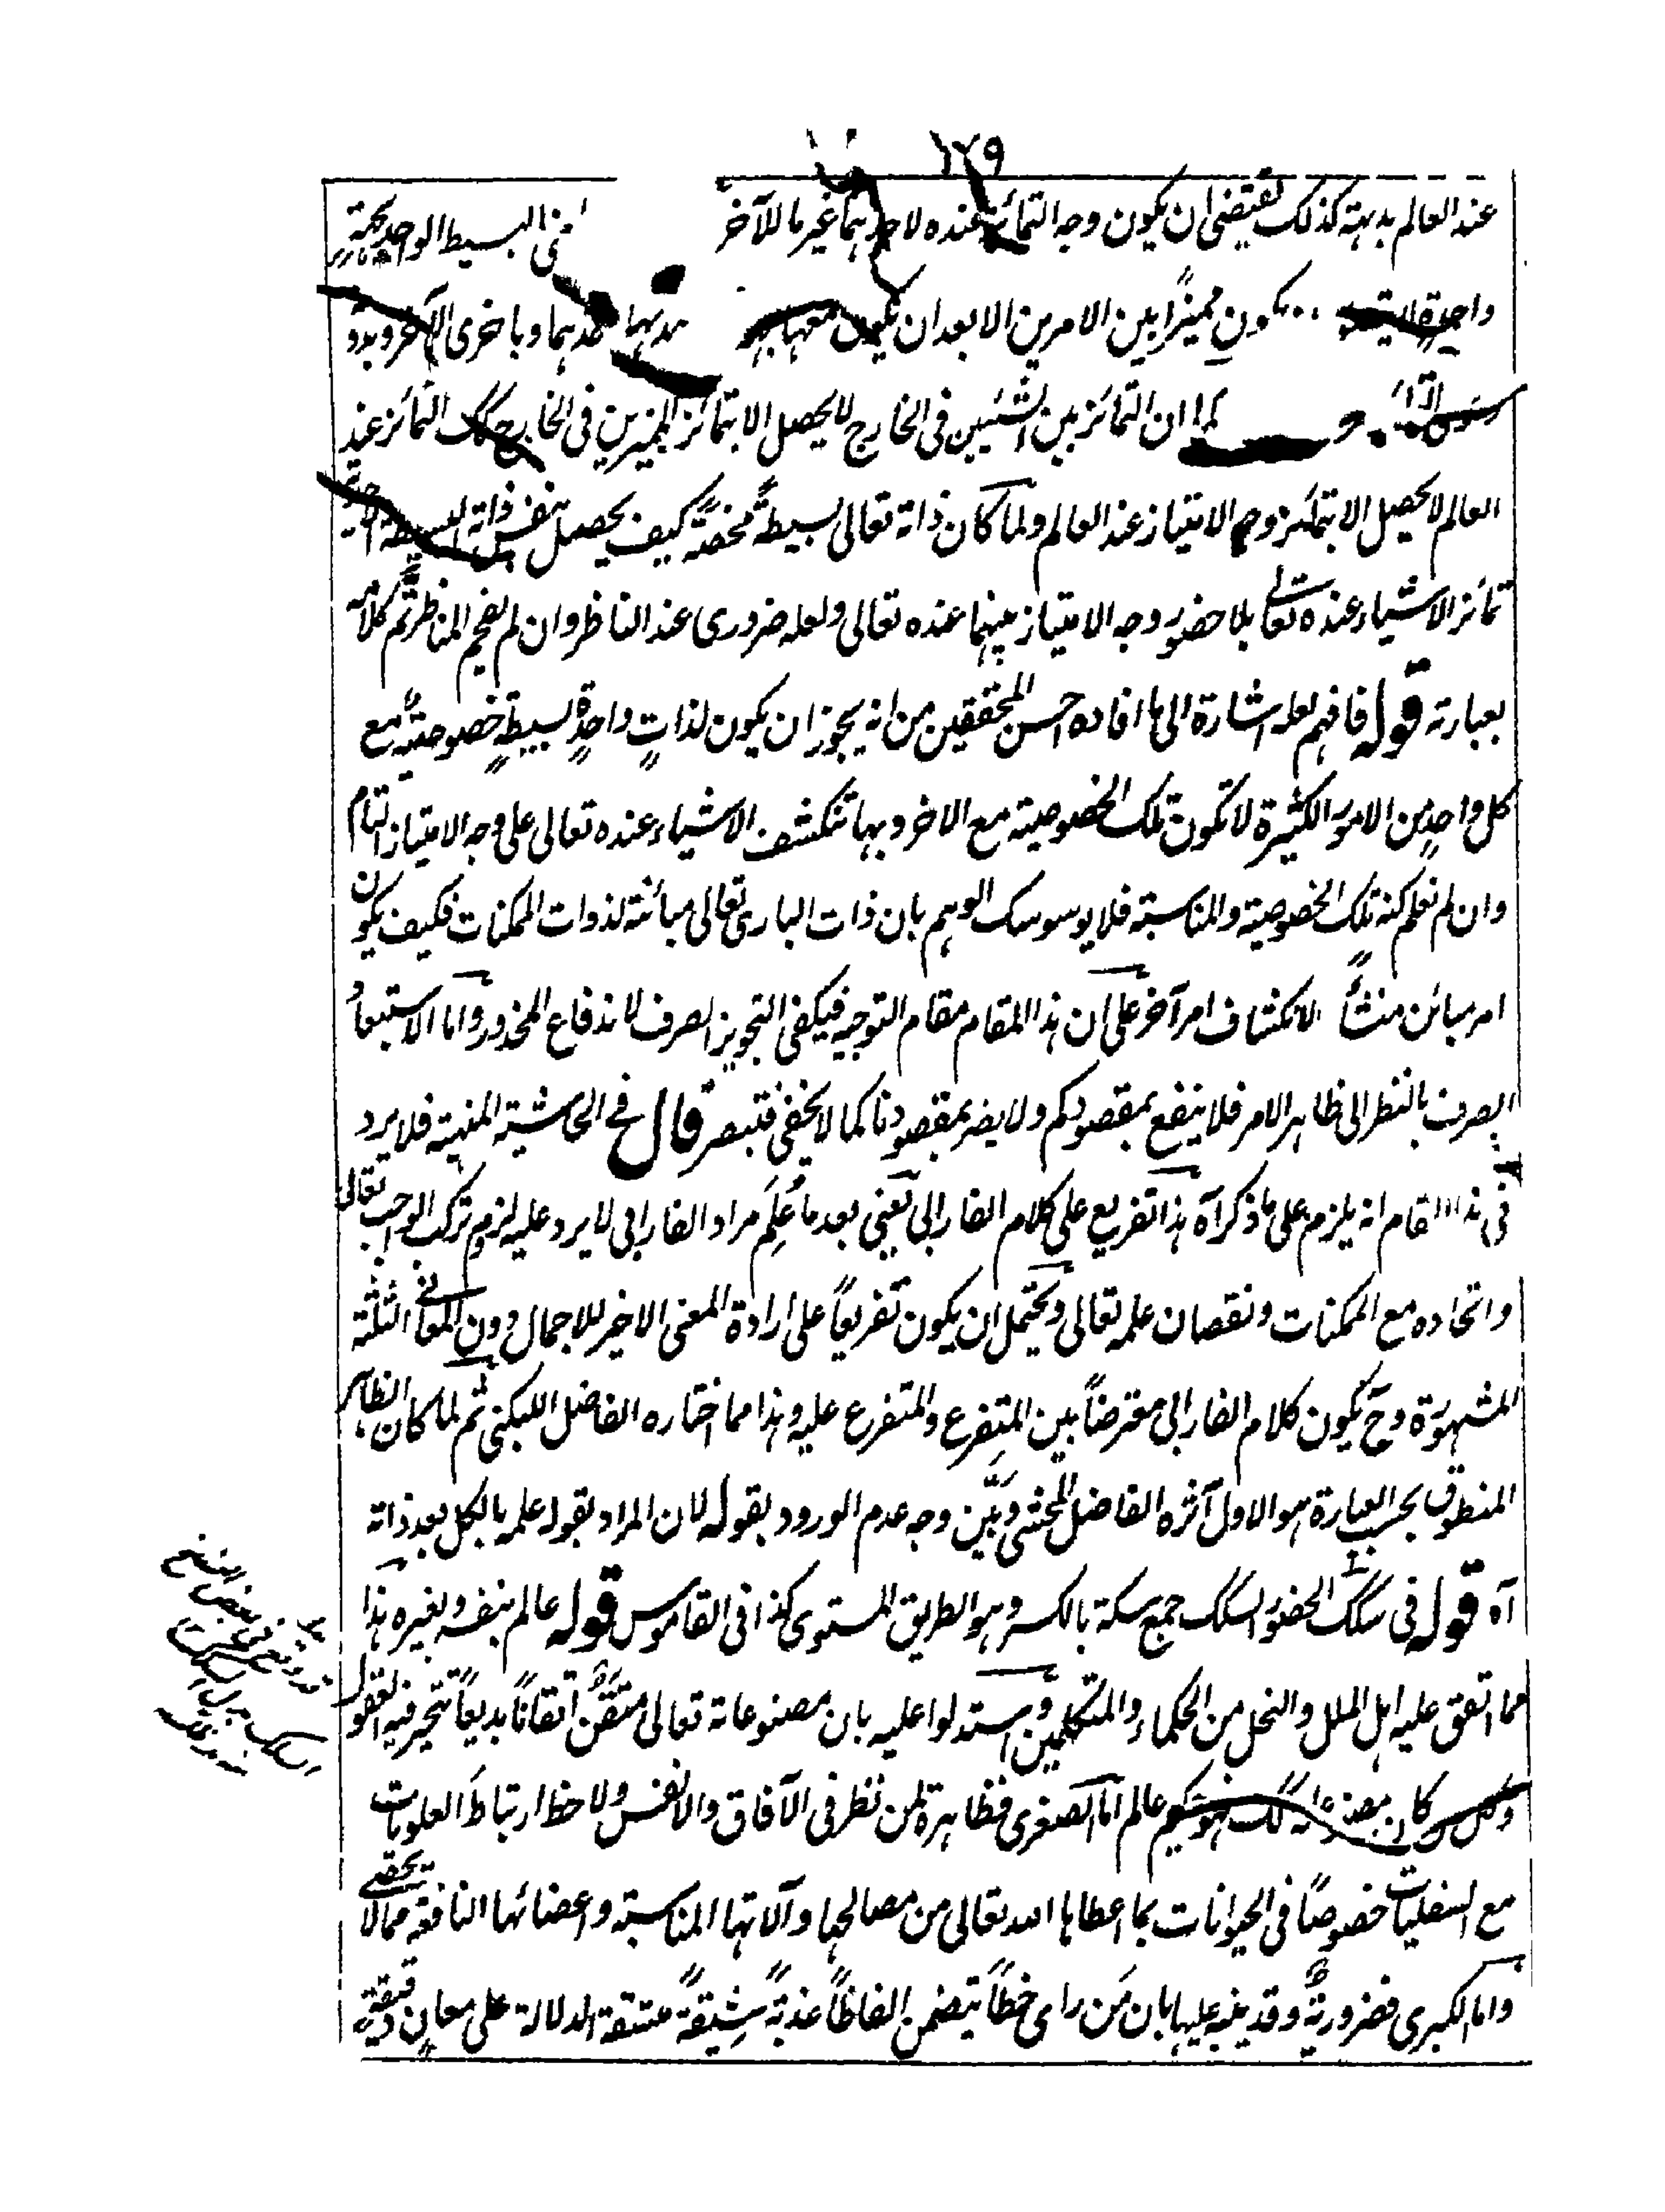 ١٢٩
عند العالم بديهة كذلك يقتضى ان يكون وجه التمائز عنده لاحدهما غير ما للآخر البسيط الواحد بجهة
واحدة لا يكون مميزًا بين الامرين الا بعد ان يكون معها احدهما وباخرى الآخر وبدو
ان التمائز بين الشيئين فى الخارج لا يحصل الا بتمائز المميزين فى الخارج كك التمائز عند
العالم لا يحصل الا بتمائز وجه الامتياز عند العالم ولما كان ذاته تعالى بسيطةً محضةً كيف يحصل بنفس ذاته البسيطة
تمائز الاشياء عنده تعالى بلا حضور وجه الامتياز بينهما عنده تعالى ولعله ضرورى عند الناظر وان لم يفحم المناظر تم كلامه
بعبارته قوله فافهم لعله اشارة الى ما افاده احسن المحققين من انه يجوز ان يكون لذاتٍ واحدةٍ بسيطةٍ خصوصيةٌ مع
كل واحدٍ من الامور الكثيرة لا تكون تلك الخصوصية مع الاخر وبها تنكشف الاشياء عنده تعالى على وجه الامتياز التام
وان لم نعلم كنه تلك الخصوصية والمناسبة فلا يوسوسك الوهم بان ذات البارى تعالى مبائنة لذوات الممكنات فكيف يكون
امر مبائن منشأً لانكشاف امر آخر على ان هذا المقام مقام التوجيه فيكفى التجويز الصرف لاندفاع المحذور واما الاستبعادُ
الصرف بالنظر الى ظاهر الامر فلا ينفع بمقصودكم ولا يضر بمقصودنا كما لا يخفى فتبصر قال فى الحاشية المنهية فلا يرد
فى هذا المقام انه يلزم على ما ذكر آه هذا تفريع على كلام الفارابى يعنى بعد ما عُلِمَ مراد الفارابى لا يرد عليه لزوم تركب الواجب تعالى
واتحاده مع الممكنات ونقصان علمه تعالى ويحتمل ان يكون تفريعًا على ارادة المعنى الاخير للاجمال دون المعانى الثلثة
المشهورة وح يكون كلام الفارابى معترضًا بين المتفرع والمتفرع عليه وهذا مما اختاره الفاضل اللبكنى ثم لما كان الظاهر
المنطوق بحسب العبارة هو الاول آثره الفاضل المحشى وبَيَّن وجه عدم الورود بقوله لان المراد بقوله علمه بالكل بعد ذاته
آه قوله فى سكك الحضور السكك جمع سكة بالكسر وهو الطريق المستوى كذا فى القاموس قوله عالم بنفسه وبغيره هذا
مما اتفق عليه اهل الملل والنحل من الحكماء والمتكلمين واستدلوا عليه بان مصنوعاته تعالى متقَنٌ اتقانًا بديعًا تتحير فيه العقول
وكل من كان مصنوعاته كك فهو حكيم عالم اما الصغرى فظاهرة لمن نظر فى الآفاق والانفس ولاحظ ارتباط العلويات
مع السفليات خصوصًا فى الحيوانات بما اعطاها الله تعالى من مصالحها وآلاتها المناسبة واعضائها النافعة مما لا يحصى
واما الكبرى فضروريةٌ وقد ينبه عليها بان مَن راى خطاً يتضمن الفاظًا عذبةً رشيقةً متسقة الدلالة على معانٍ دقيقةٍ